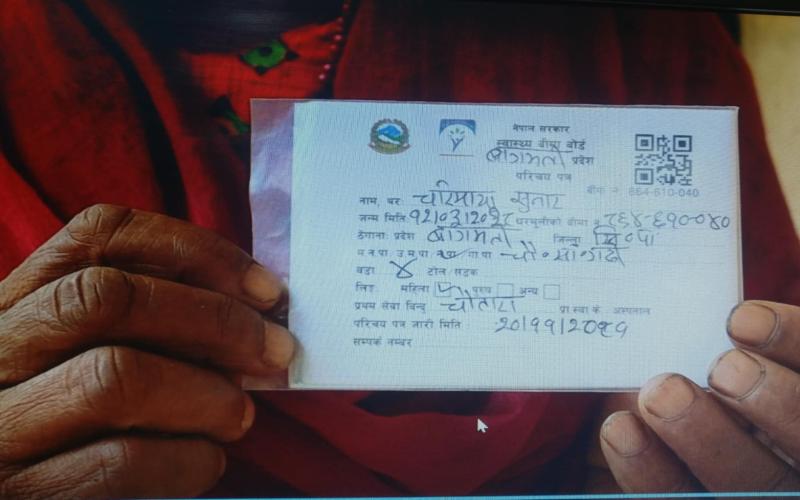 नेपाल सरकार
स्वास्थ्य बीमा बोर्ड
बागमती प्रदेश
परिचय पत्र
बीमा नं. 864-610-040
नाम, थर: चरिमाया सुनार
जन्म मिति: घरमुलीको बीमा नं ८६४-६१०-०४०
ठेगाना: प्रदेश बागमती जिल्ला सि०पा
म.न.पा उ.म.पा न.पा गा.पा चौ०साँ०गढी
वडा ४ टोल/सडक
लिङ्ग: महिला पुरुष अन्य
प्रथम सेवा विन्दु चौतारा प्रा.स्वा.के. अस्पताल
परिचय पत्र जारी मिति
सम्पर्क नम्बर